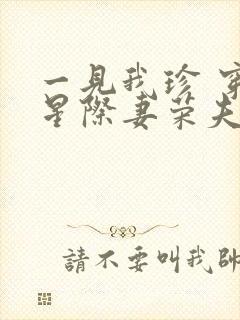 一見我珍 穿
星際妻荣夫
請不要叫我帥